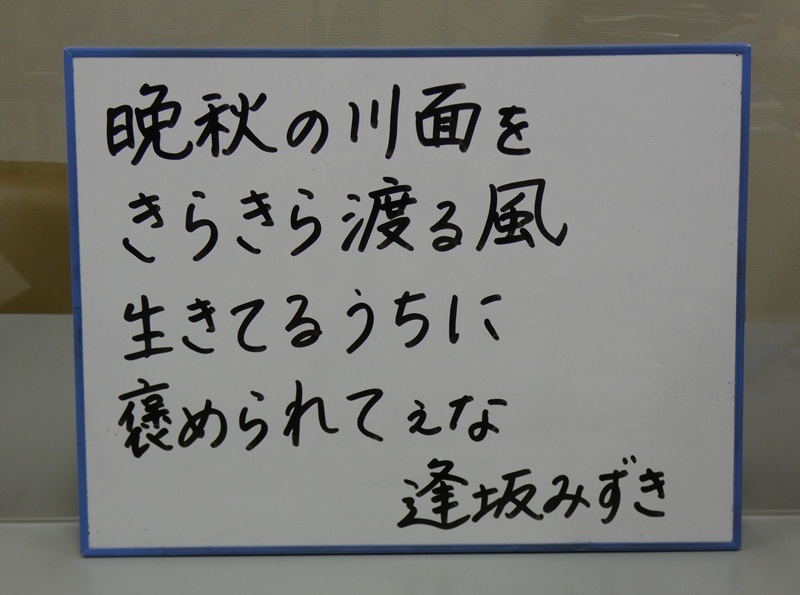 晩秋の川面を
きらきら渡る風
生きてるうちに
褒められてぇな
逢坂みずき